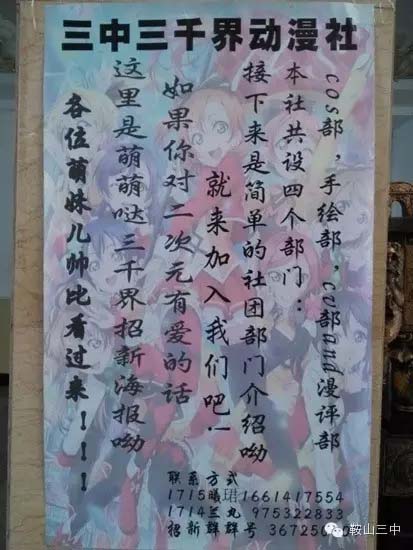 三中三千界动漫社
各位萌妹儿帅比看过来!!!
这里是萌萌哒三千界招新海报呦
如果你对二次元有爱的话
就来加入我们吧!
接下来是简单的社团部门介绍呦
本社共设四个部门:
cos部,手绘部,cv部and漫评部
联系方式
1715曦珺1661417554
1714兰丸 975322833
招新群群号
鞍山三中